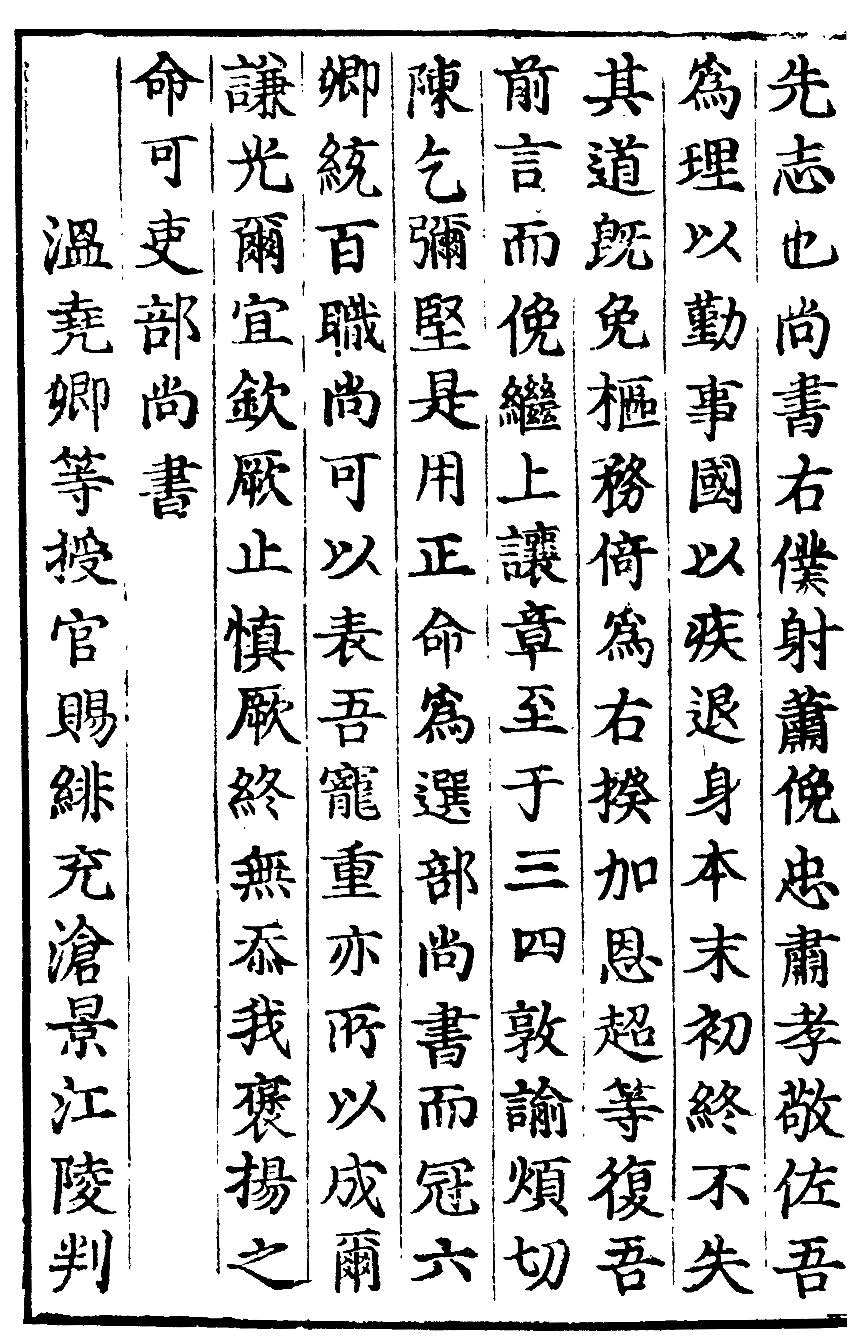 先志也尚書右僕射蕭俛忠肅孝敬佐吾
爲理以勤事國以疾退身本末初終不失
其道旣免樞務倚爲右揆加恩超等復吾
前言而俛繼上讓章至于三四敦諭煩切
陳乞彌堅是用正命爲選部尚書而冠六
卿統百職尚可以表吾寵重亦所以成爾
謙光爾宜欽厥止慎厥終無忝我褒揚之
命可吏部尚書
溫堯卿等授官賜緋充滄景江陵判